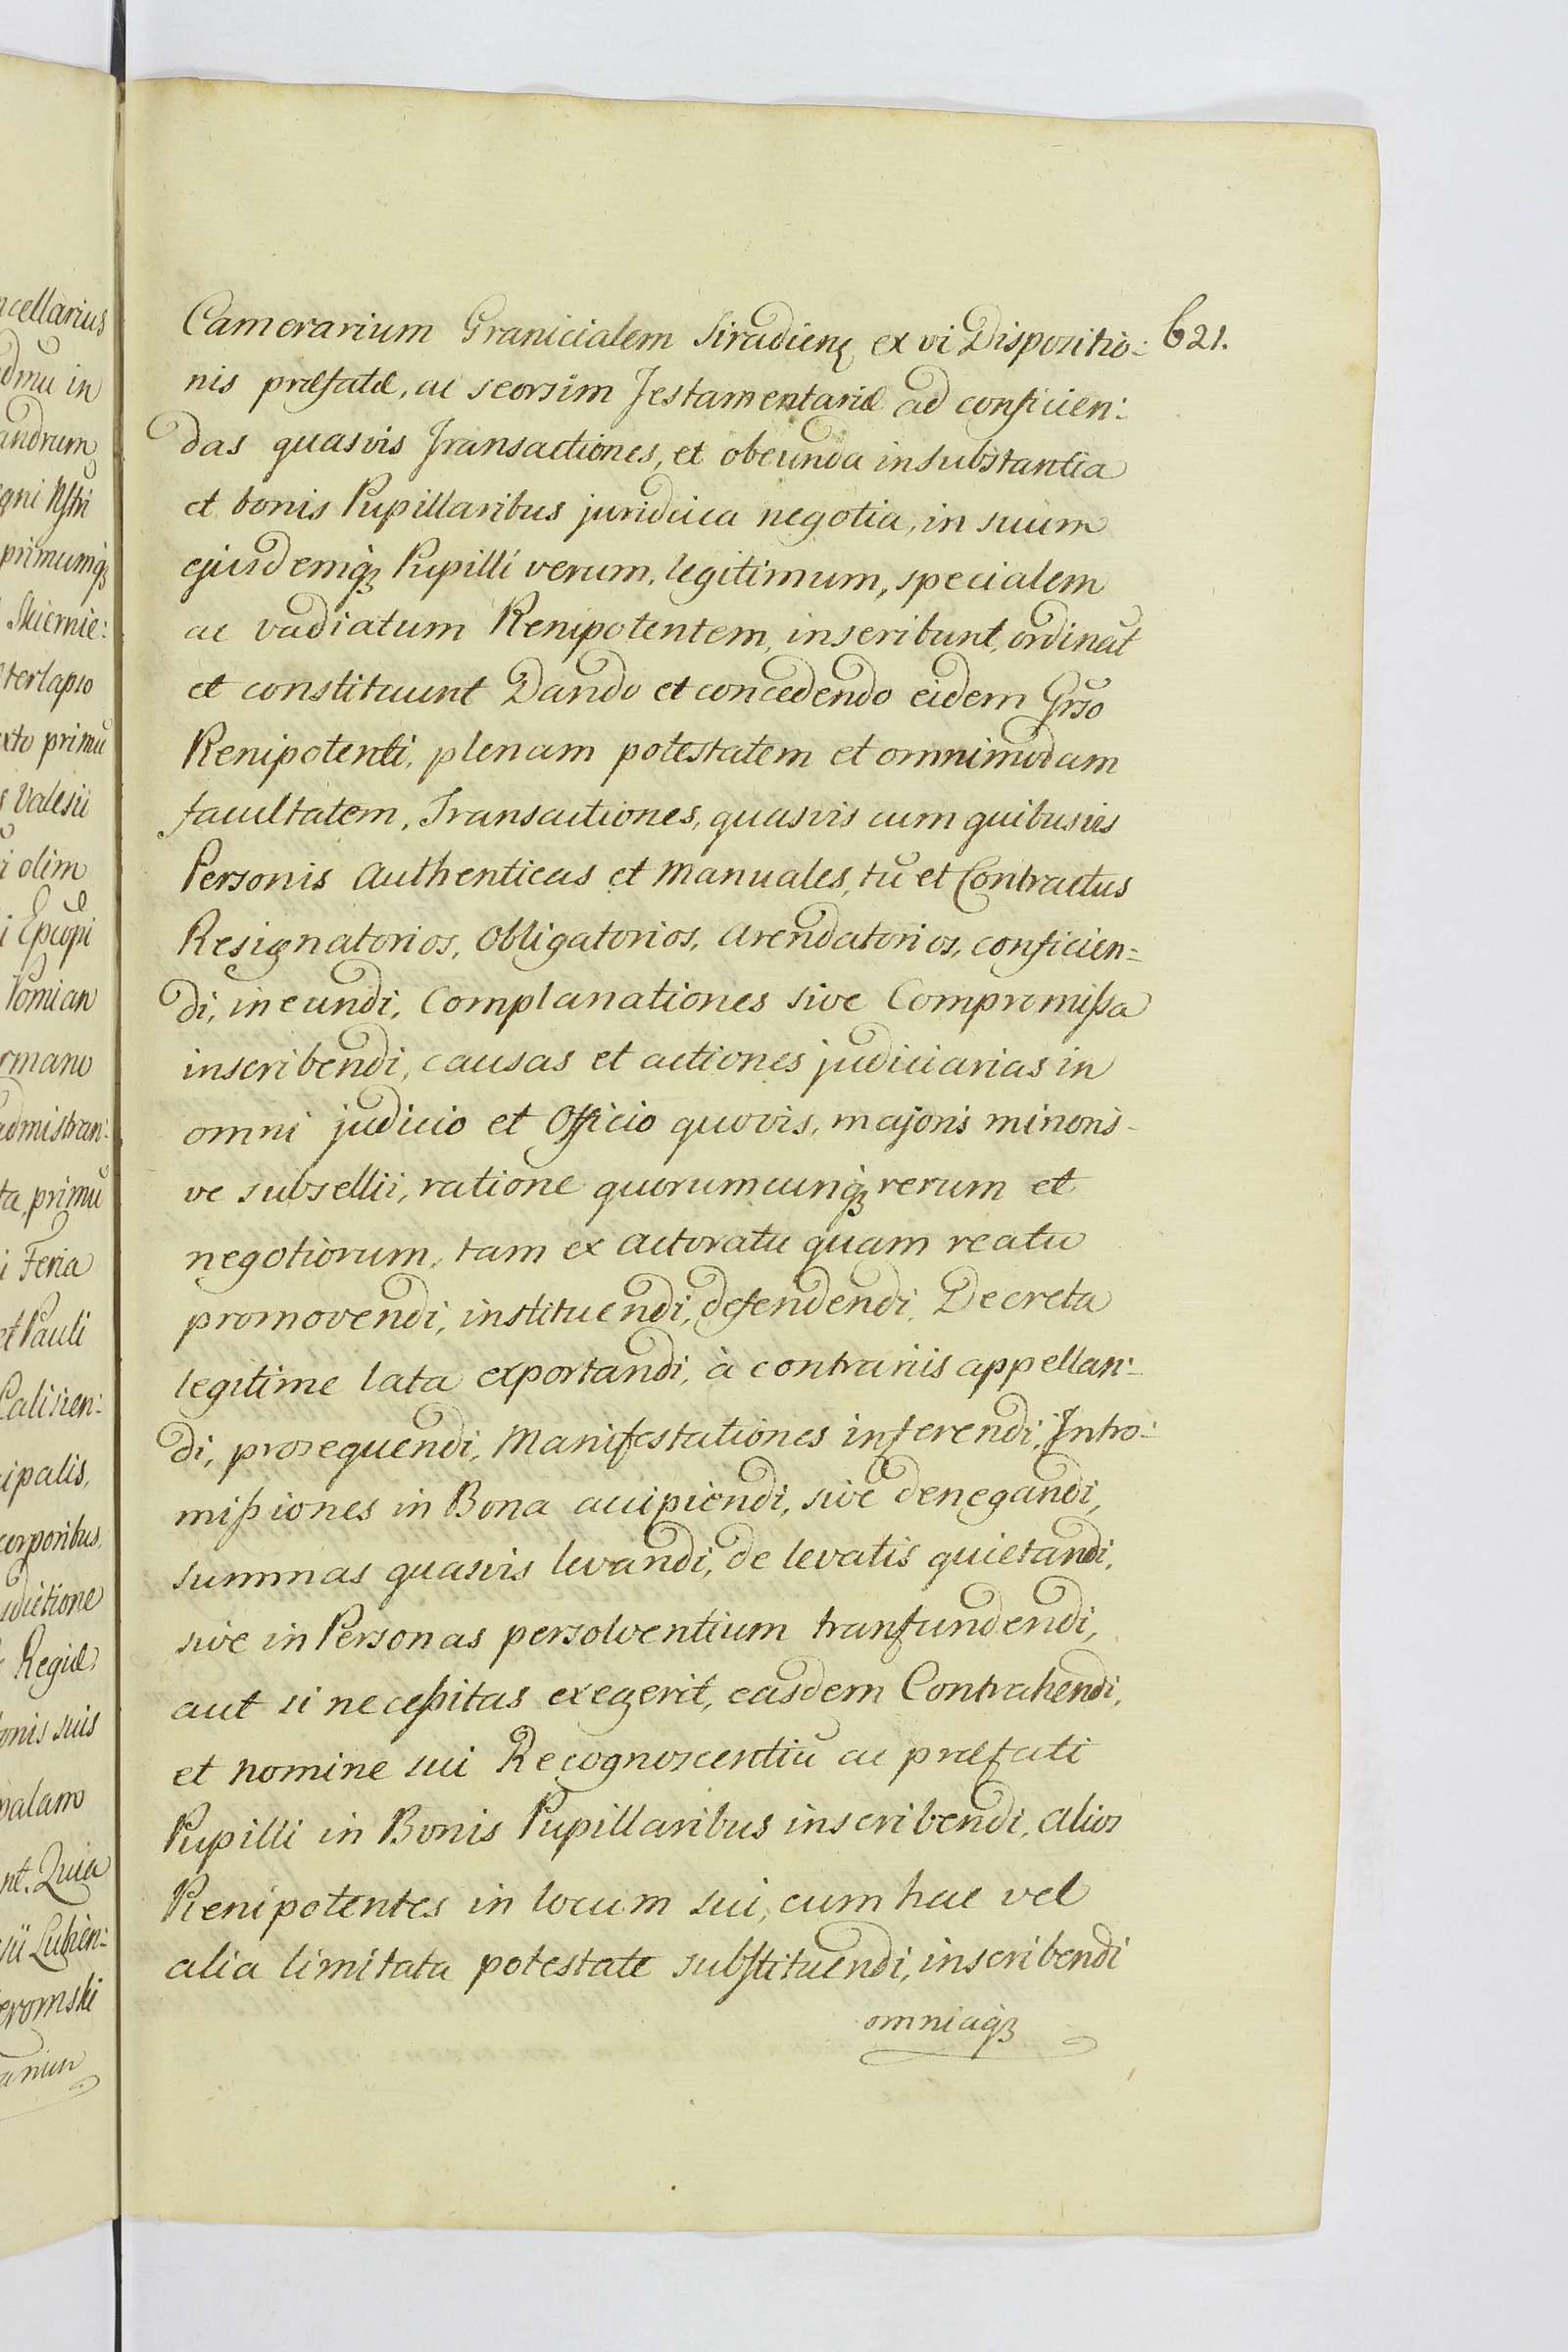 Camerarium Granicialem Siradien: ex vi Dispositio:
621.
nis præfatæ, ac seorsim Testamentariæ ad conficien:
das quasvis Transactiones, et obeunda in substantia
et bonis Pupillaribus juridica negotia, in suum
ejusdemq3 Pupilli verum, legitimum, specialem
ac vadiatum Plenipotentem, inscribunt, ordināt
et constituunt Dando et concedendo eidem Grso
Plenipotenti, plenam potestatem et omnimodam
facultatem, Transactiones, quasvis cum quibusvis
Personis Authenticas et Manuales, tū et Contractus
Resignatorios, Obligatorios, Arendatorios, conficien=
di, ineundi, Complanationes sive Compromissa
inscribendi, causas et actiones judiciarias in
omni judicio et Officio quovis, majoris minoris-
ve subsellii, ratione quorumcunq3 rerum et
negotiorum, tam ex Actoratu quam reatu
promovendi, instituendi, defendendi, Decreta
legitime lata exportandi, à contrariis appellan:
di, prosequendi, Manifestationes inferendi, Intro:
missiones in Bona accipiendi, sive denegandi,
summas quasvis levandi, de levatis quietandi,
sive in Personas persolventium transfundendi,
aut si necessitas exegerit, easdem Contrahendi,
et nomine sui Recognoscentiū ac præfati
Pupilli in Bonis Pupillaribus inscribendi, Alios
Plenipotentes in locum sui, cum hac vel
alia limitata potestate substituendi, inscribendi
omniaq3
cellarius
in
andrum
primumq3
Skiernie:
primū
Valesii
olim
Epcopi
Pomian
admistran:
primū
Feria
et Pauli
Calisien:
corporibus,
Regiæ
suis
Quia
Lubien: